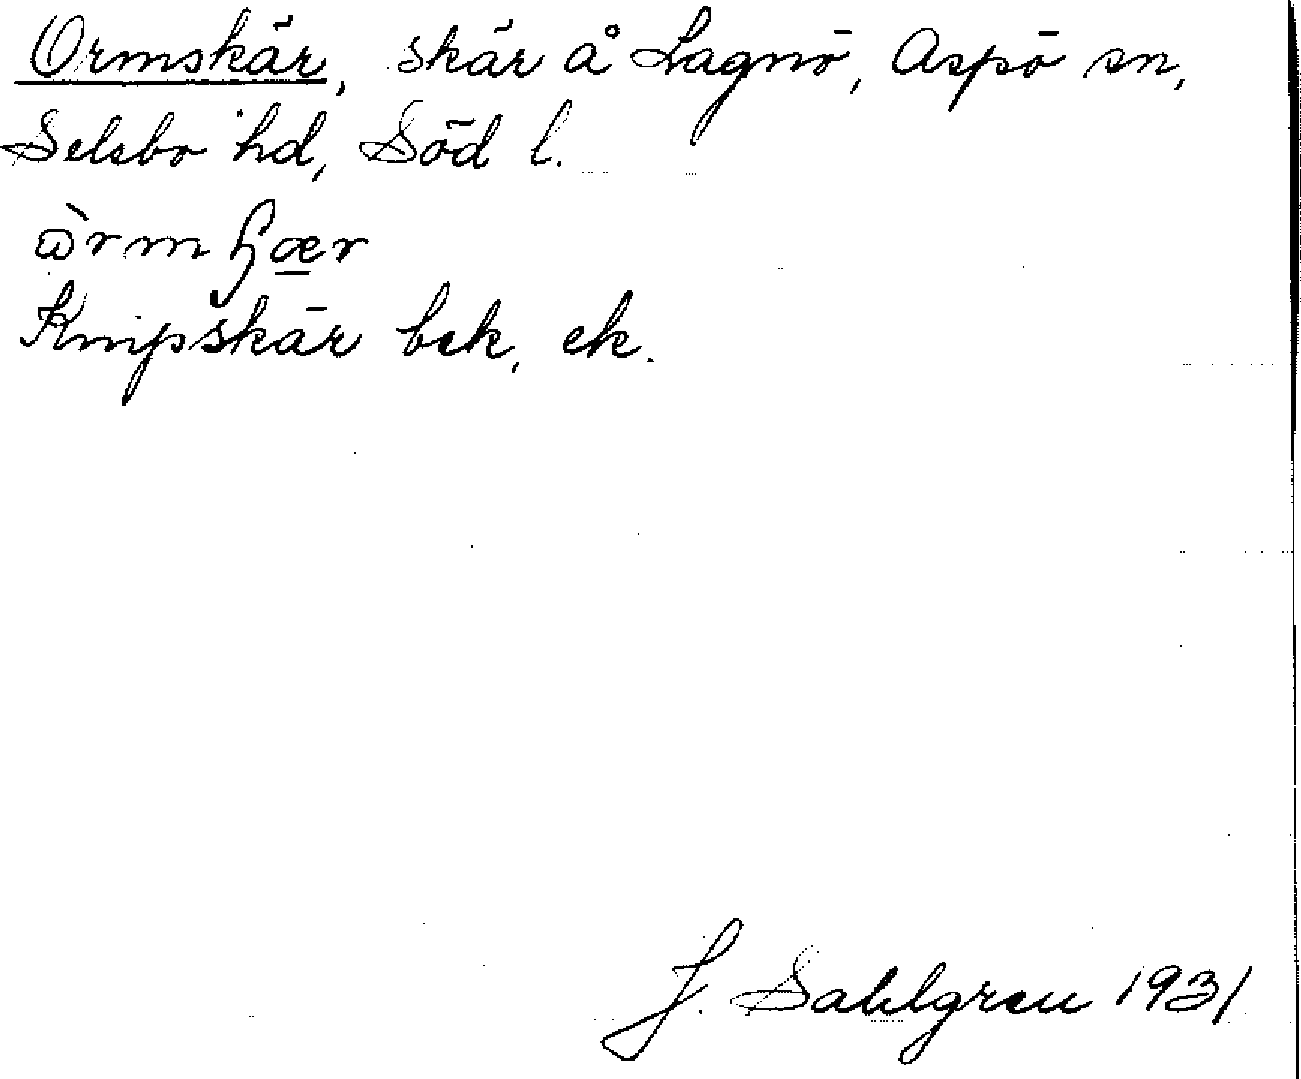 Ormskär, skär å Lagnö, Aspö sn,
Selebo hd, Söd l.
Knipskär bek, ek.
J. Sahlgren 1931